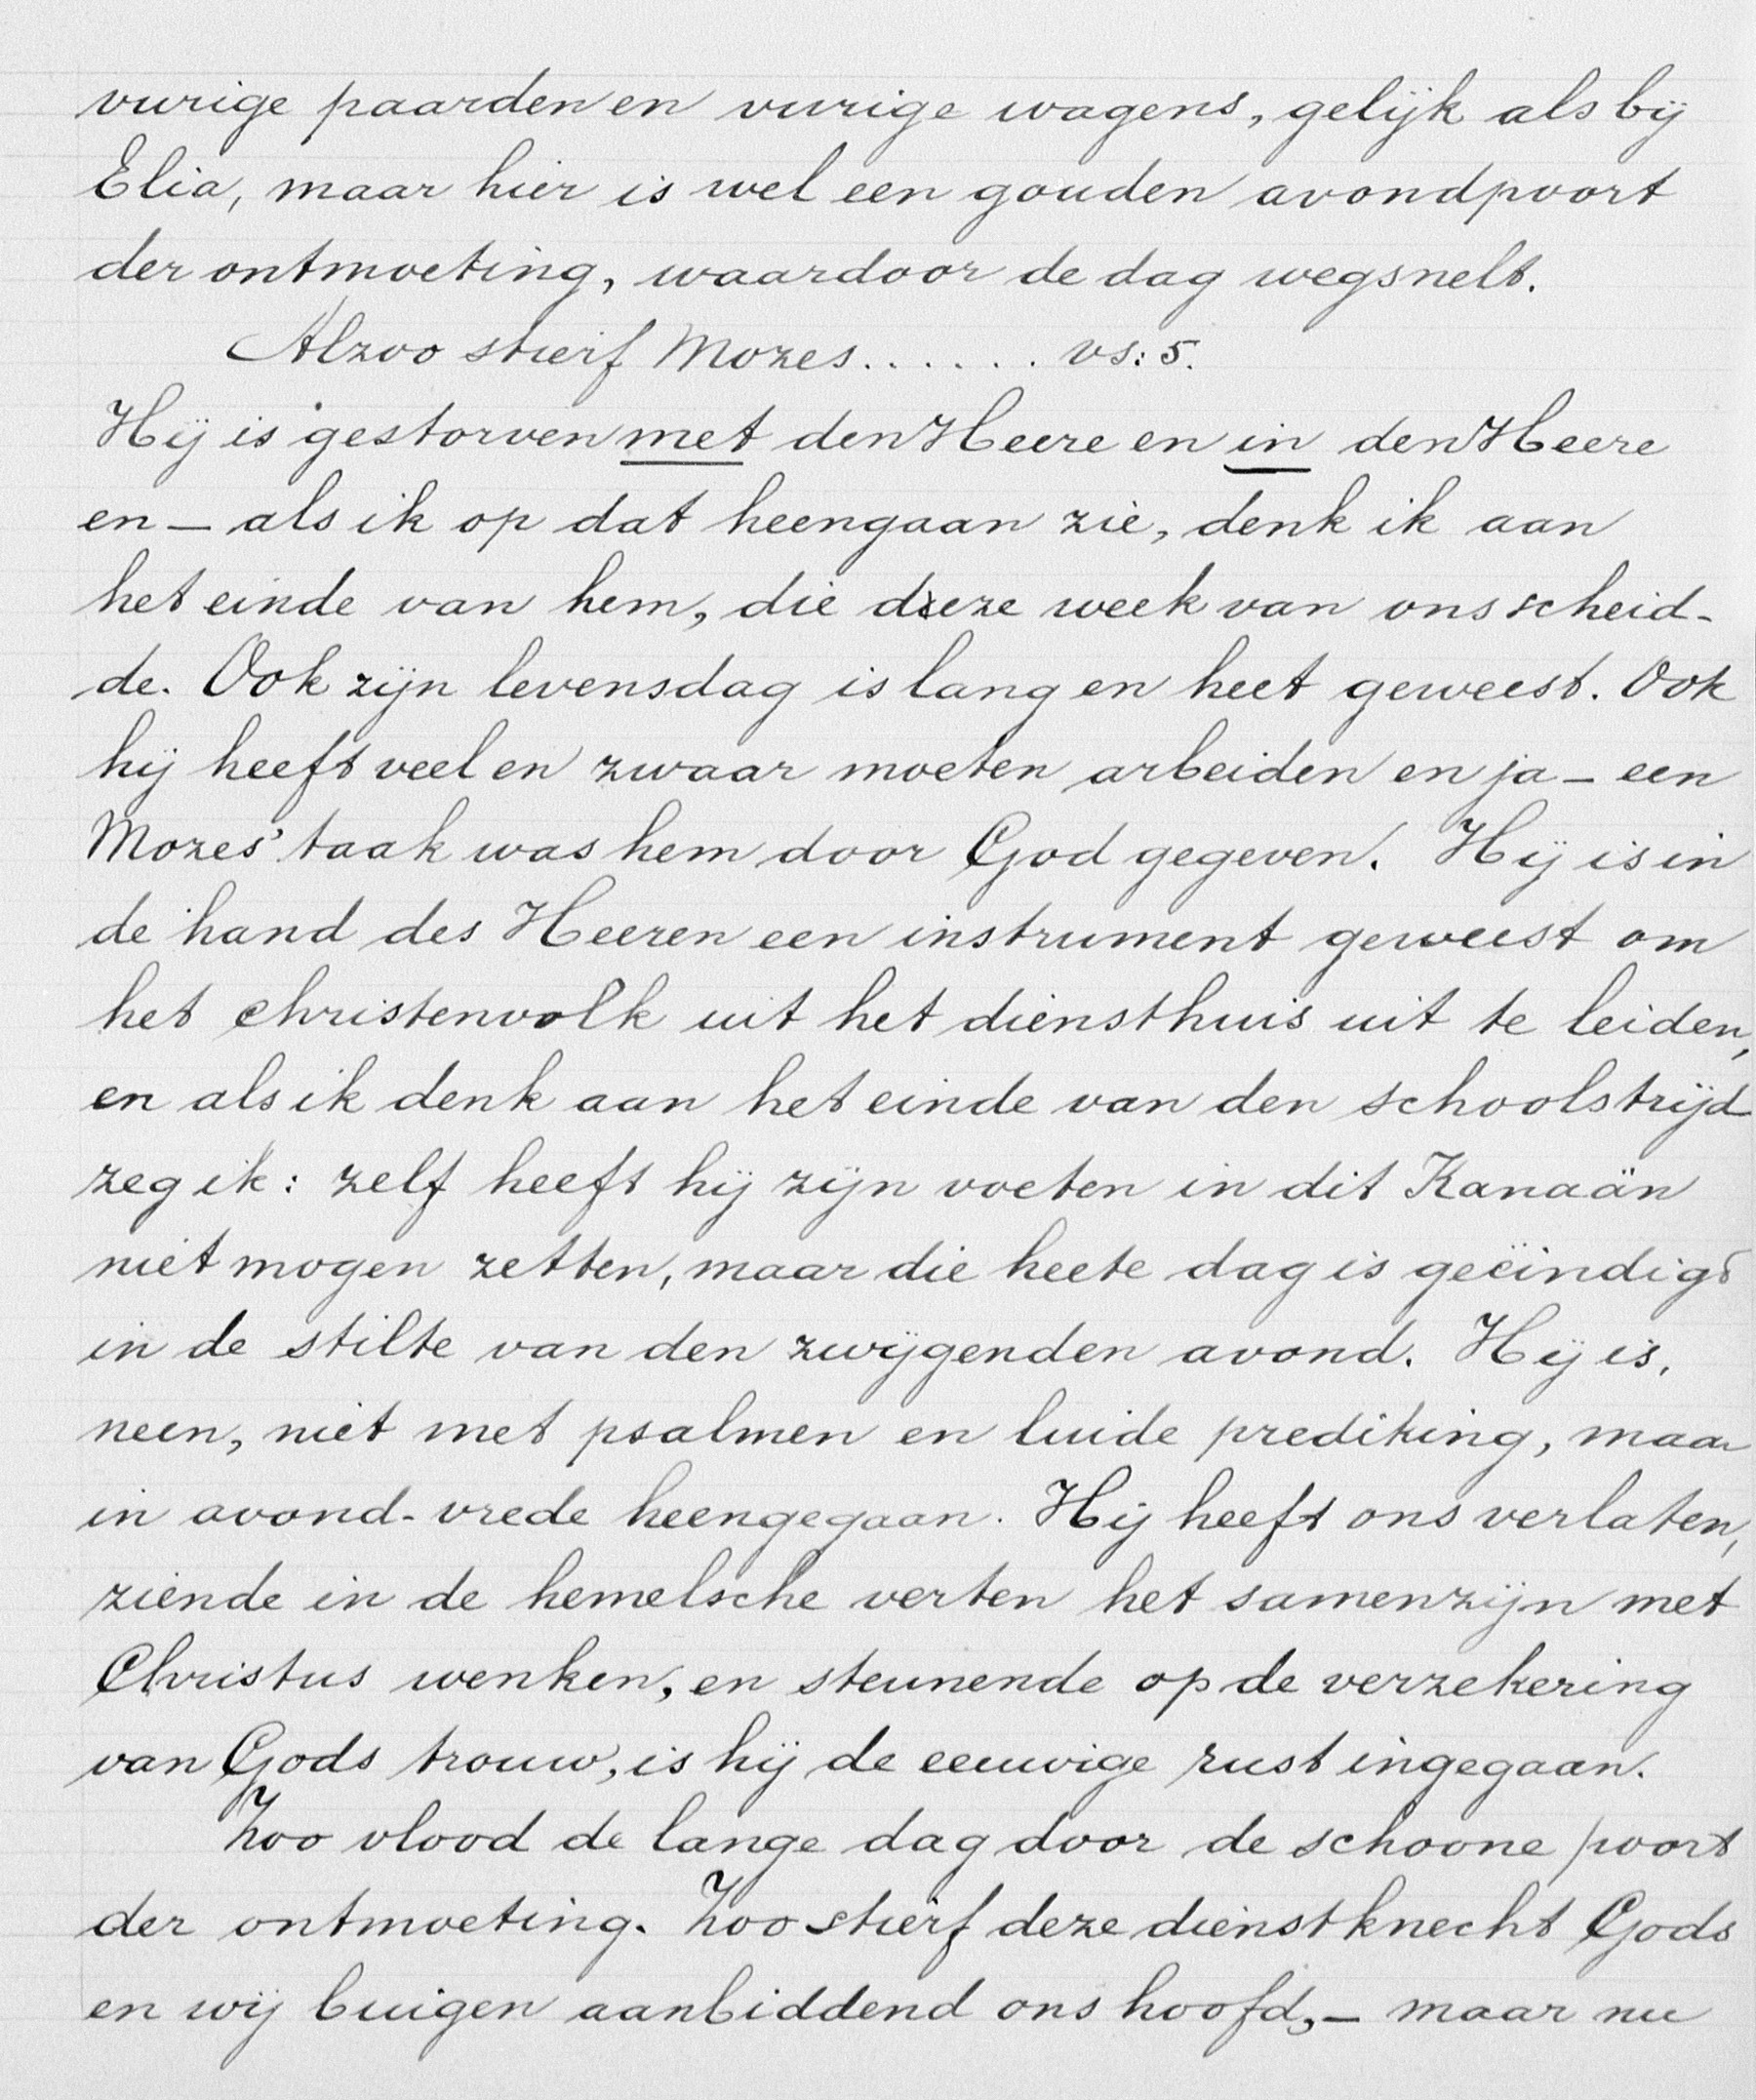 vurige paarden en vurige wagens, gelijk als bij
Elia, maar hier is wel een gouden avondpoort
der ontmoeting, waardoor de dag wegsnelt.
Alzoo stierf Mozes...... vs: 5.
Hij is gestorven met den Heere en in den Heere
en — als ik op dat heengaan zie, denk ik aan
het einde van hem, die deze week van ons scheid-
de. Ook zijn levensdag is lang en heet geweest. Ook
hij heeft veel en zwaar moeten arbeiden en ja — een
Mozes' taak was hem door God gegeven. Hij is in
de hand des Heeren een instrument geweest om
het christenvolk uit het diensthuis uit te leiden,
en als ik denk aan het einde van den schoolstrijd
zeg ik: zelf heeft hij zijn voeten in dit Kanaän
niet mogen zetten, maar die heete dag is geëindigd
in de stilte van den zwijgenden avond. Hij is,
neen, niet met psalmen en luide prediking, maar
in avond-vrede heengegaan. Hij heeft ons verlaten,
ziende in de hemelsche verten het samenzijn met
Christus wenken, en steunende op de verzekering
van Gods trouw, is hij de eeuwige rust ingegaan.
Zoo vlood de lange dag door de schoone poort
der ontmoeting. Zoo stierf deze dienstknecht Gods
en wij buigen aanbiddend ons hoofd, — maar nu